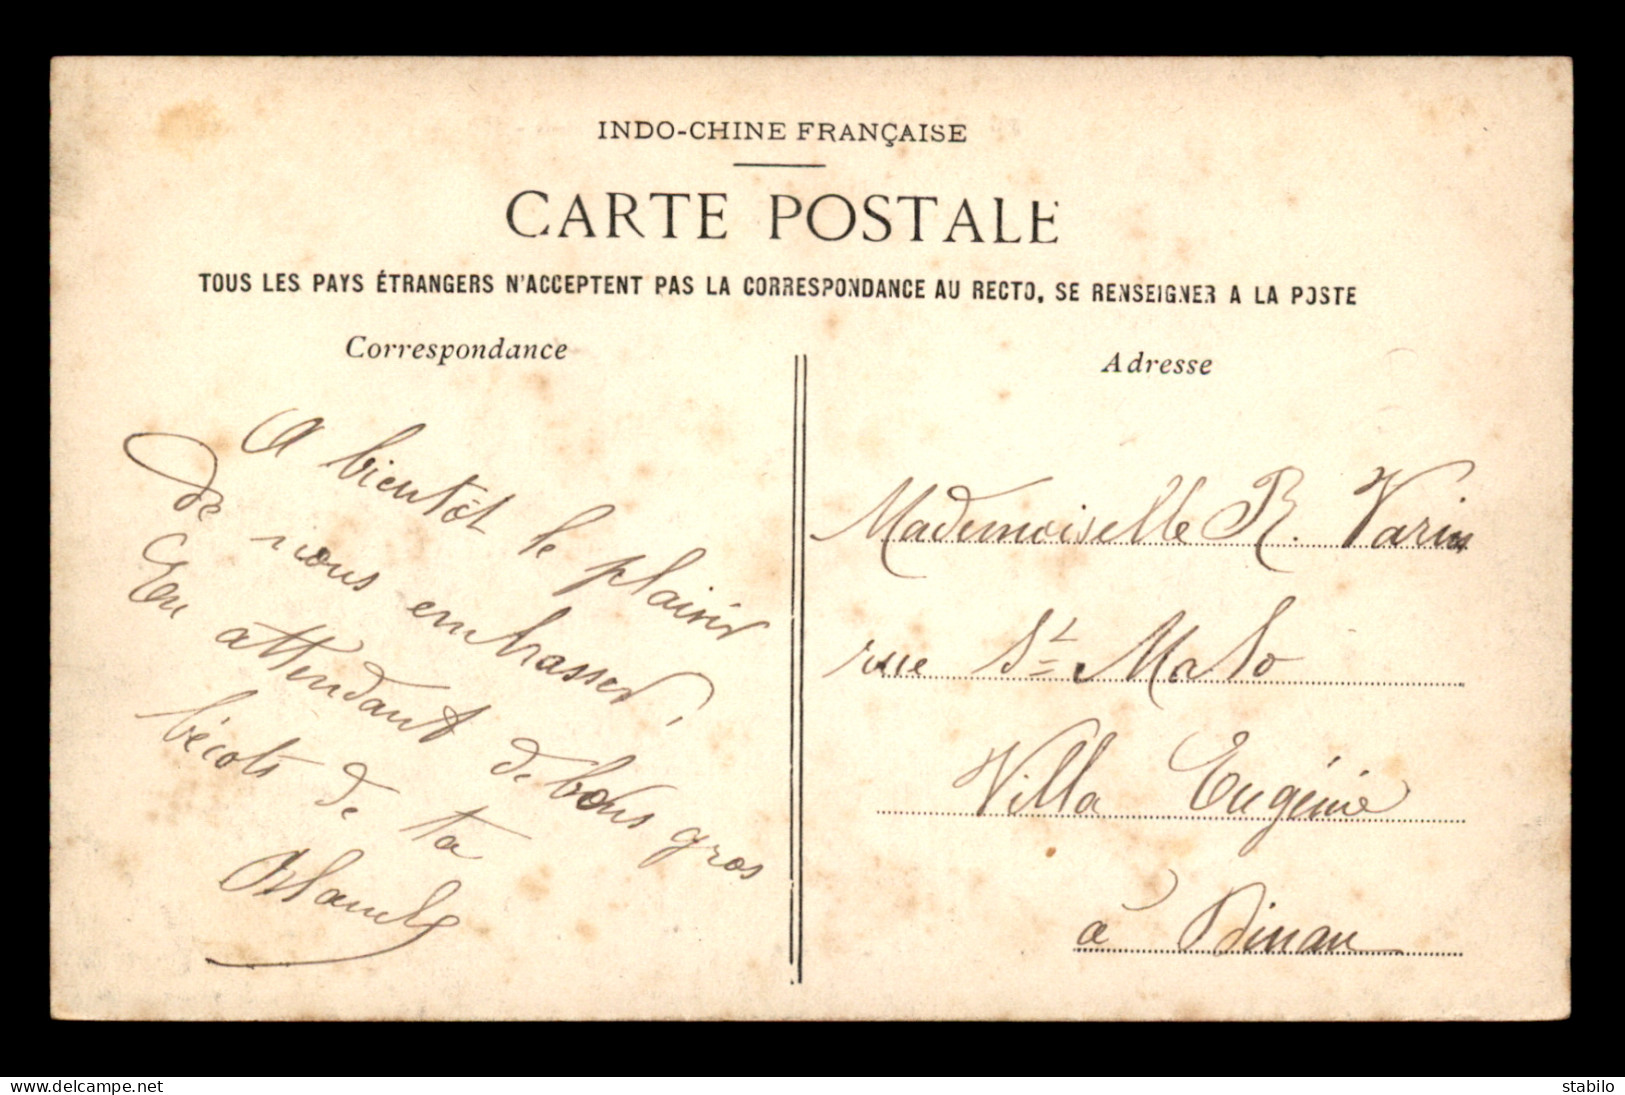 INDO-CHINE FRANÇAISE
CARTE POSTALE
TOUS LES PAYS ÉTRANGERS N'ACCEPTENT PAS LA CORRESPONDANCE AU RECTO, SE RENSEIGNER A LA POSTE
Correspondance
A bientôt le plaisir
de nous embrasser,
En attendant de bons gros
bécots de ta
Adresse
Mademoiselle R. Varin
rue St Malo
Villa Eugénie
à Dinan
www.delcampe.net
stabilo